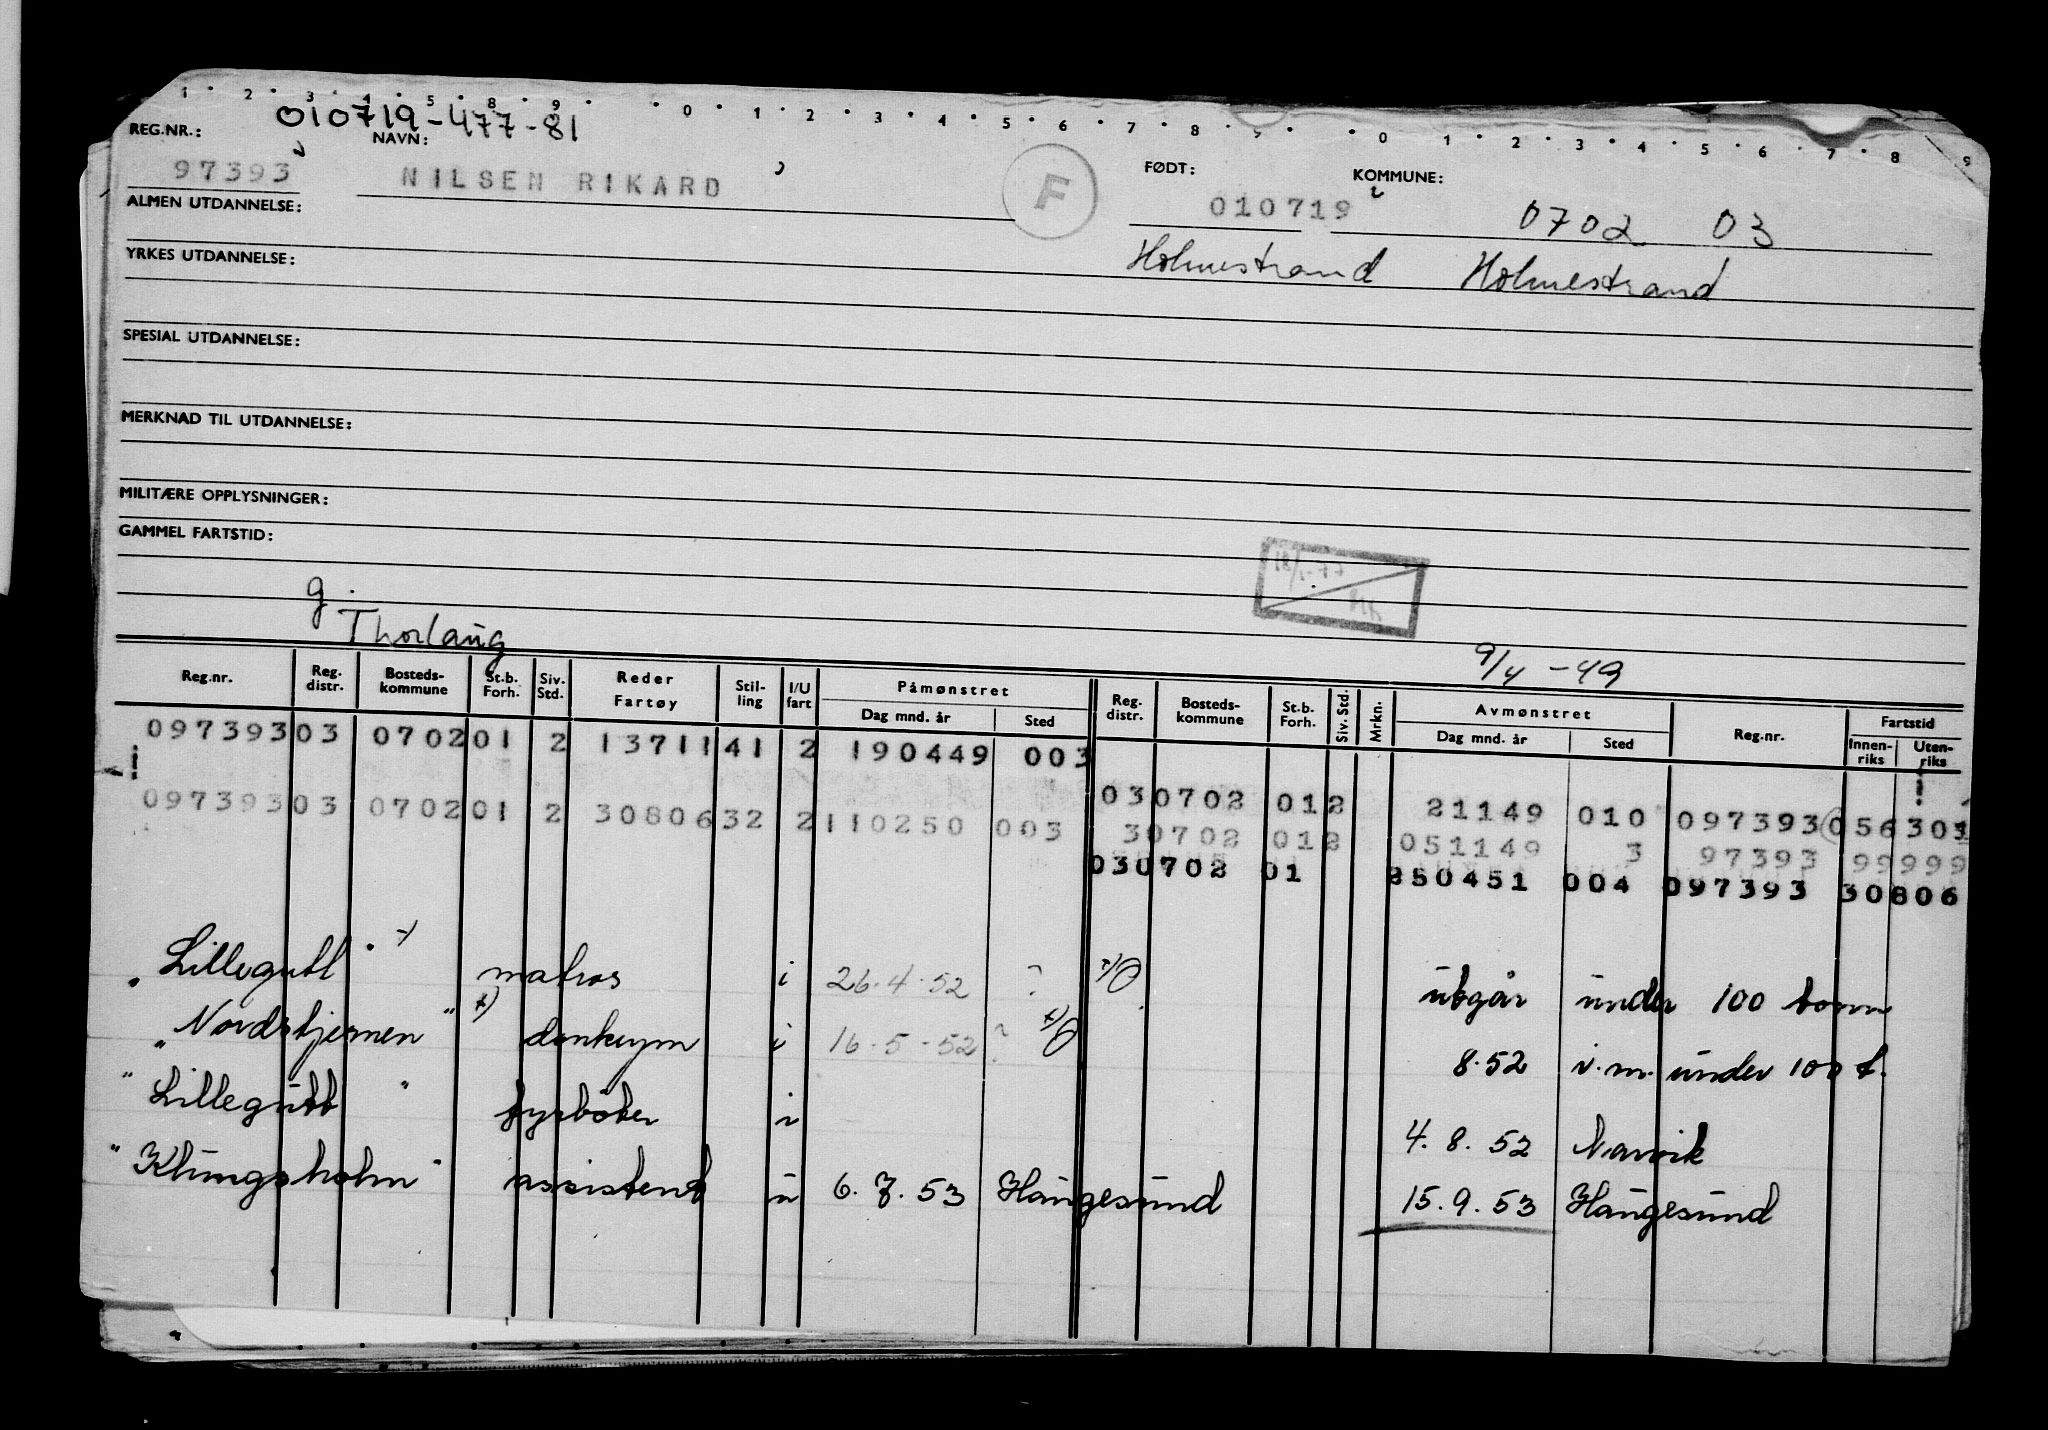 1 2 3 4 5 8 9 0 1 2 3 4 5 6 7 8 9 0 1 2 3 4 5 6 7 8 9
010719-477-81
REG.NR.: NAVN: FØDT: KOMMUNE:
97393 NILSEN RIKARD F 010719 0702 03
ALMEN UTDANNELSE:
Holmestrand Holmestrand
YRKES UTDANNELSE:
SPESIAL UTDANNELSE:
MERKNAD TIL UTDANNELSE:
MILITÆRE OPPLYSNINGER:
GAMMEL FARTSTID:
18/1-77
g.
Thorlaug 9/4-49
Reg.nr. Reg. distr. Bosteds-kommune St.b. Forh. Siv. Std. Reder Fartøy Stil-ling I/U fart Påmønstret Dag mnd. år Sted Reg. distr. Bosteds-kommune St.b. Forh. Siv. Std. Mrkn. Avmønstret Dag mnd. år Sted Reg.nr. Fartstid Innen-riks Uten-riks
097393 03 0702 01 2 13711 41 2 190449 003
030702 012 21149 010 097393 056301
097393 03 0702 01 2 30806 32 2 110250 003 30702 012 051149 3 97393 99999
030702 01 250451 004 097393 30806
"Lillegutt" x) matros i 26.4.52 ? x) utgår under 100 tonn
"Nordstjernen" x) donkeym i 16-5-52 ? x) 8.52 i.m. under 100 t.
"Lillegutt" fyrbøter i 4.8.52 Narvik
"Klungsholm" assistent u 6.7.53 Haugesund 15.9.53 Haugesund